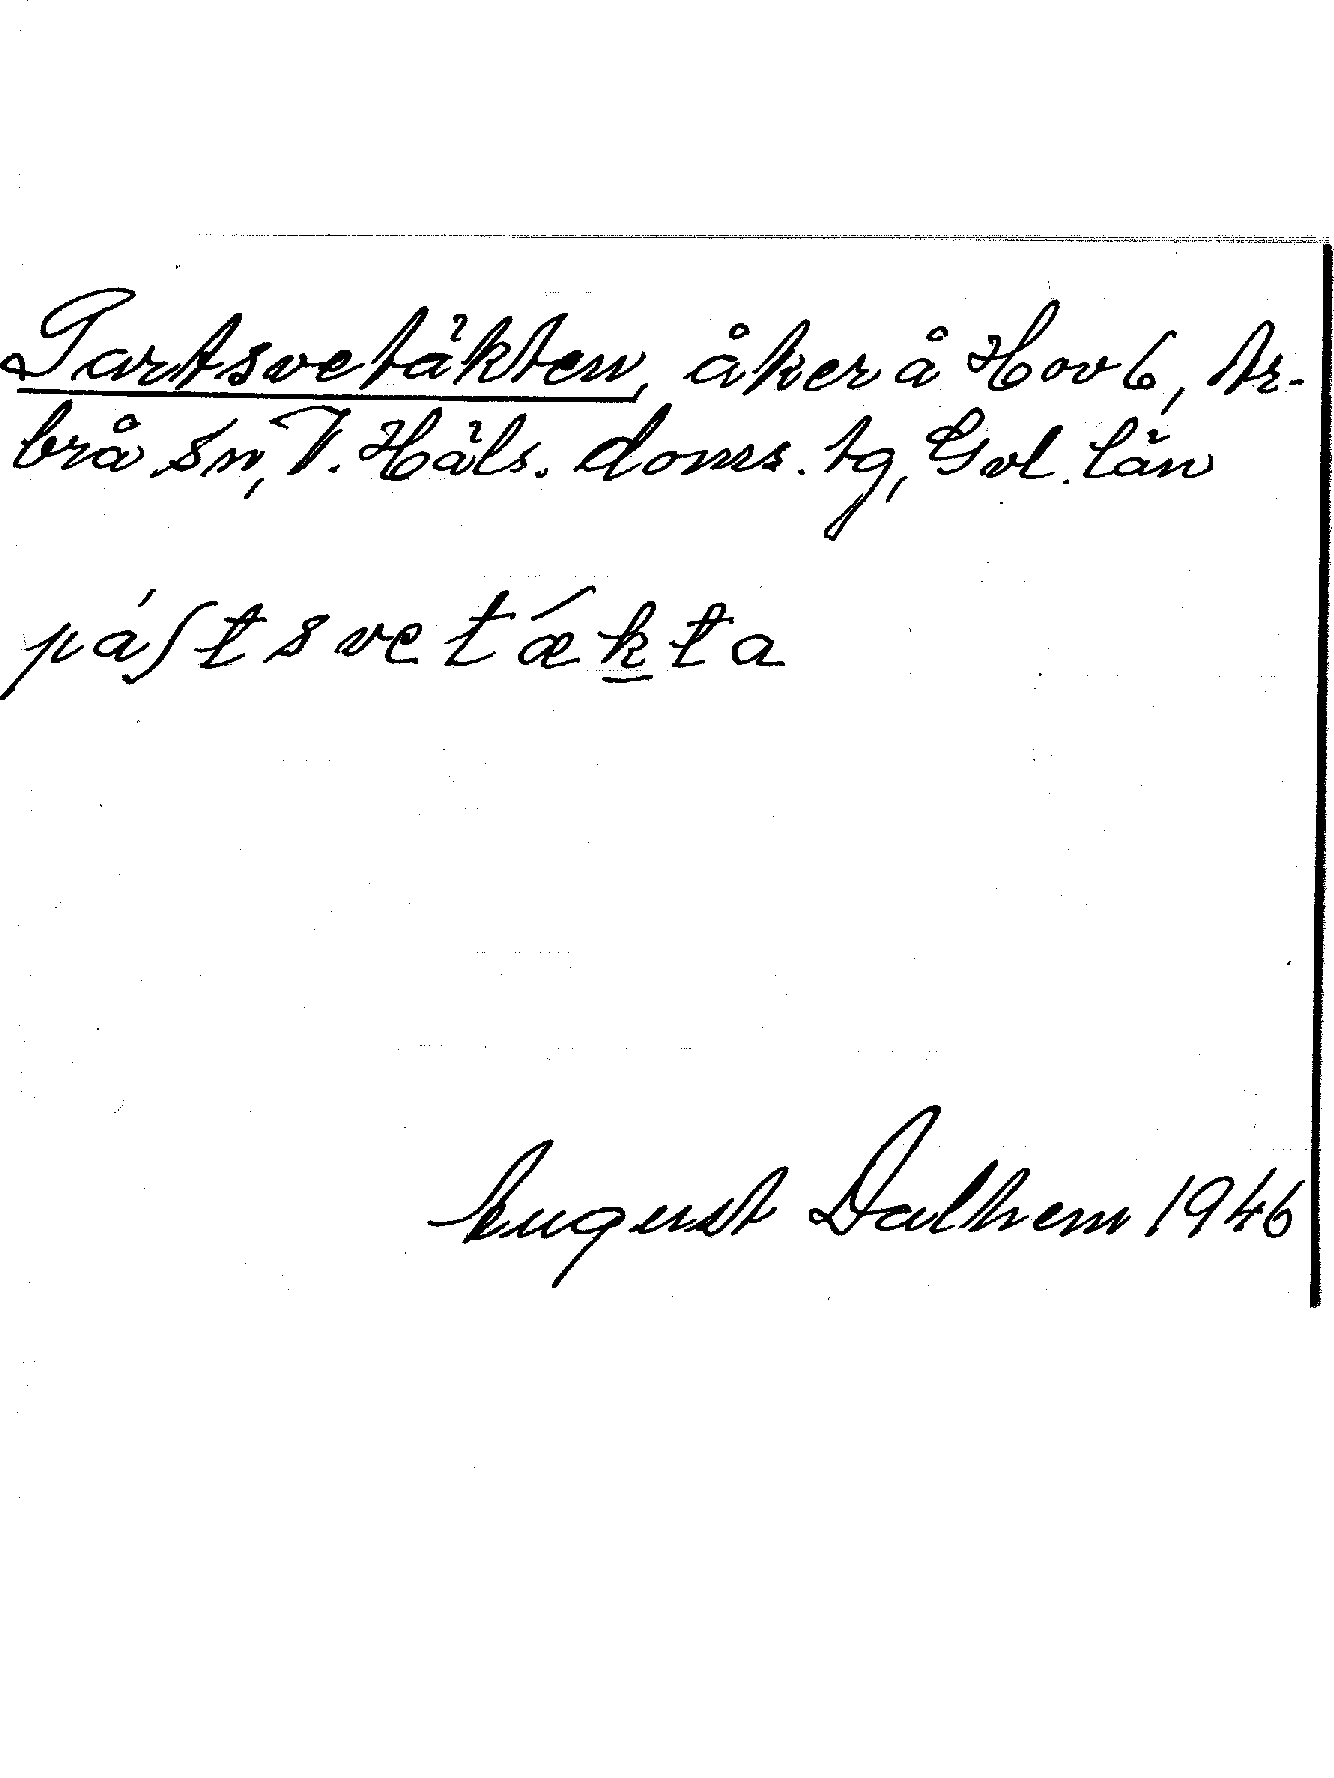 Partsvetäkten, åker å Hov 6, Ar-
brå sn, V. Häls. doms. tg, Gvl. län
páʃtsvetǽkta
August Dalhem 1946